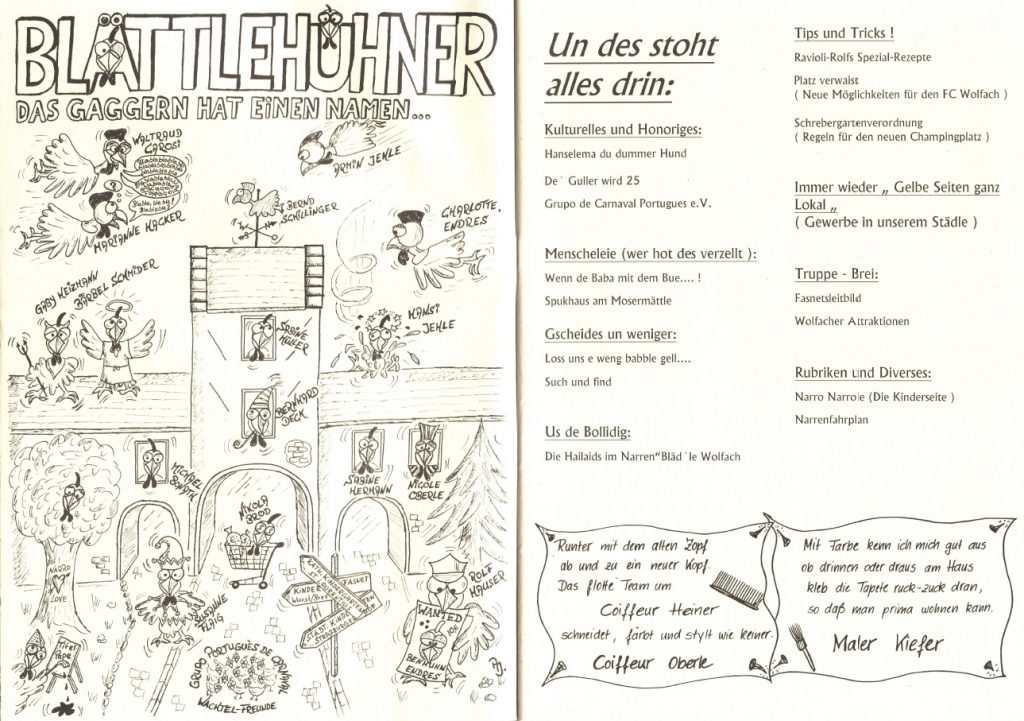 BLÄTTLEHÜHNER
DAS GAGGERN HAT EINEN NAMEN...
WALTRAUD
CAROSI
MARIANNE KACKER
ARMIN JEHLE
BERND
SCHILLINGER
CHARLOTTE
ENDRES
GABY HEIZMANN
BÄRBEL SCHMIDER
SABINE
HANSI
JEHLE
BERNHARD
DECK
MICHAEL
SABINE
HERMANN
NICOLE
OBERLE
NIKOLA
BROD
NARRO
LOVE
SUSANNE
FLAIG
ROLF
HAUSER
WANTED
BENHUHN
ENDRES
FASNET
KINDER
STADT. KINDER
GRUPO PORTUGUÈS DE CARNAVAL
WACHTEL-FREUNDE
Un des stoht
alles drin:
Kulturelles und Honoriges:
Hanselema du dummer Hund
De´ Guller wird 25
Grupo de Carnaval Portugues e.V.
Menscheleie (wer hot des verzellt ):
Wenn de Baba mit dem Bue.... !
Spukhaus am Mosermättle
Gscheides un weniger:
Loss uns e weng babble gell....
Such und find
Us de Bollidig:
Die Hailaids im Narren“Bläd´le Wolfach
Tips und Tricks !
Ravioli-Rolfs Spezial-Rezepte
Platz verwaist
( Neue Möglichkeiten für den FC Wolfach )
Schrebergartenverordnung
( Regeln für den neuen Champingplatz )
Immer wieder „ Gelbe Seiten ganz
Lokal „
( Gewerbe in unserem Städle )
Truppe - Brei:
Fasnetsleitbild
Wolfacher Attraktionen
Rubriken und Diverses:
Narro Narrole (Die Kinderseite )
Narrenfahrplan
Runter mit dem alten Zopf
ab und zu ein neuer Kopf.
Das flotte Team um
Coiffeur Heiner
schneidet, färbt und stylt wie keiner.
Coiffeur Oberle
Mit Farbe kenn ich mich gut aus
ob drinnen oder draus am Haus
kleb die Tapete ruck-zuck dran,
so daß man prima wohnen kann.
Maler Kiefer